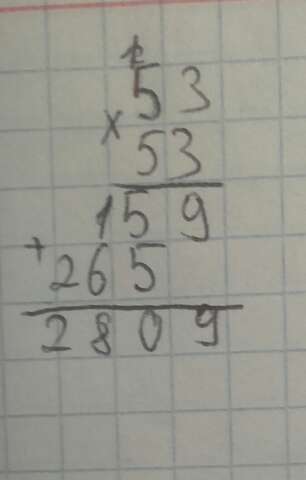 53
× 53
159
+ 265
2809